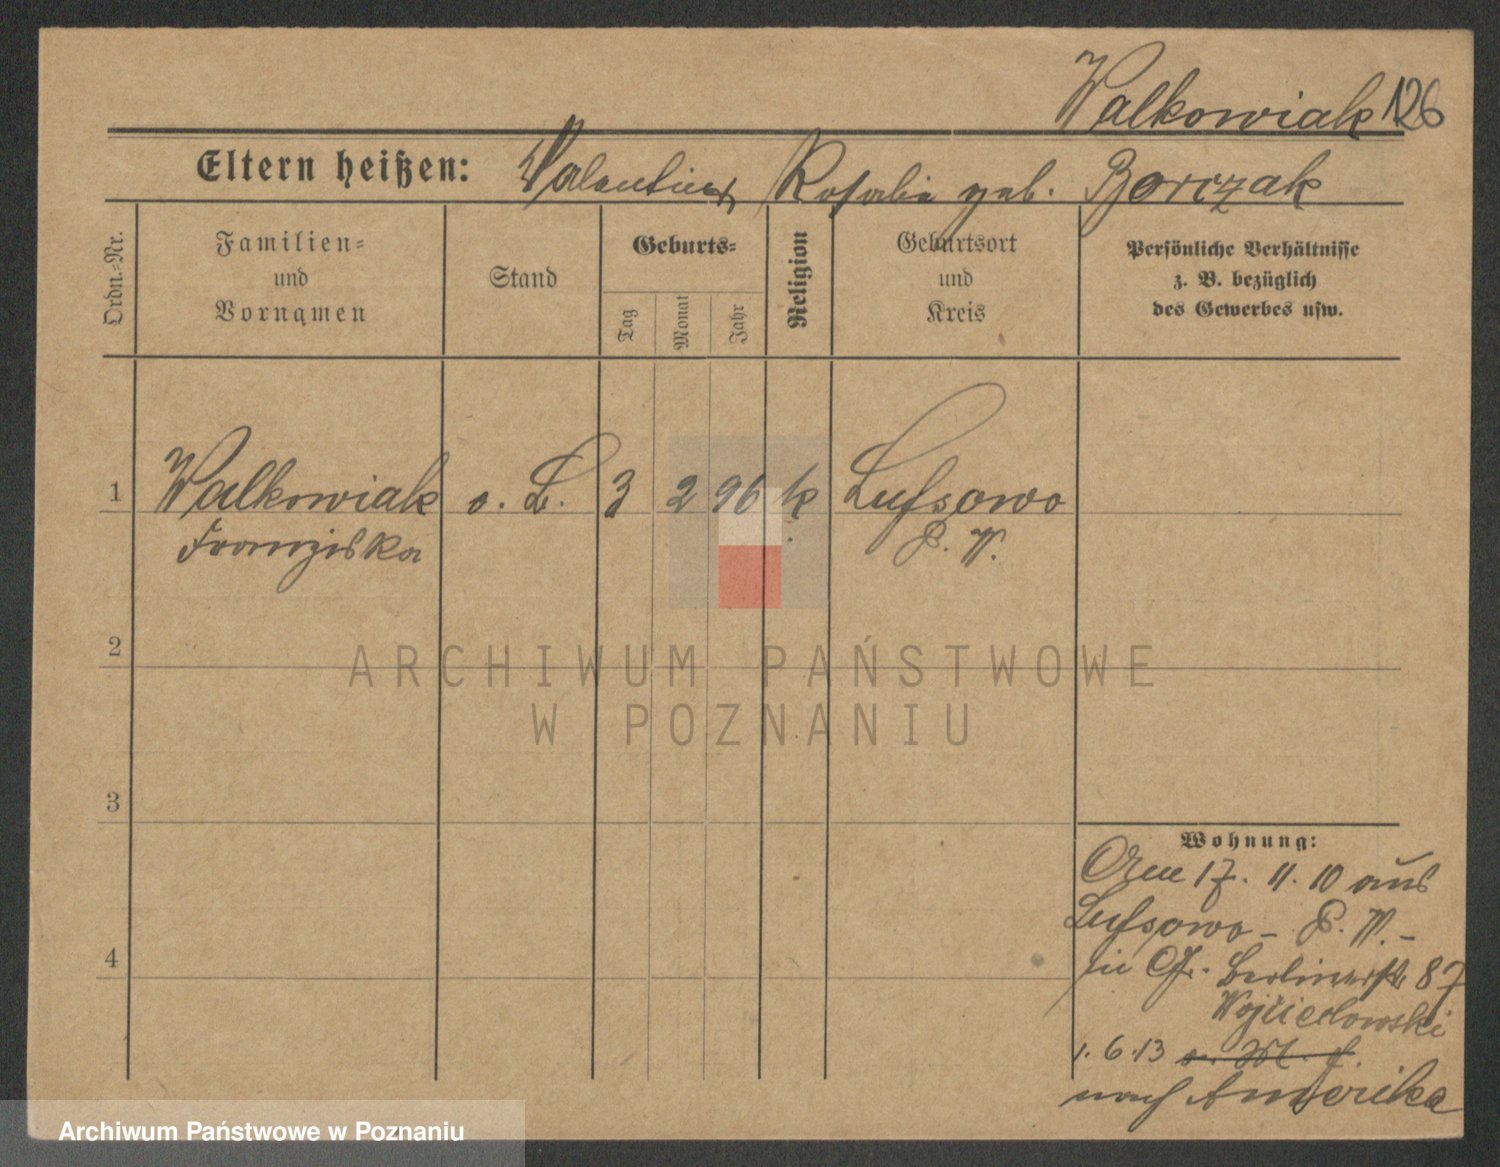 Walkowiak 126
Eltern heißen: Valentin Rosalie geb. Borczak
Ordn.-Nr.
Familien-
und
Vornamen
Stand
Geburts-
Tag
Monat
Jahr
Religion
Geburtsort
und
Kreis
Persönliche Verhältnisse
z. B. bezüglich
des Gewerbes usw.
1 Walkowiak o. B. 3 2 96 k Lussowo
Franziska P. W.
2
3
4
ARCHIWUM PAŃSTWOWE
W POZNANIU
Wohnung:
Am 17. 11. 10 aus
Lussowo - P. W. -
in O/. Berlinerstr 87
Wojciechowski
1. 6. 13
nach Amerika
Archiwum Państwowe w Poznaniu